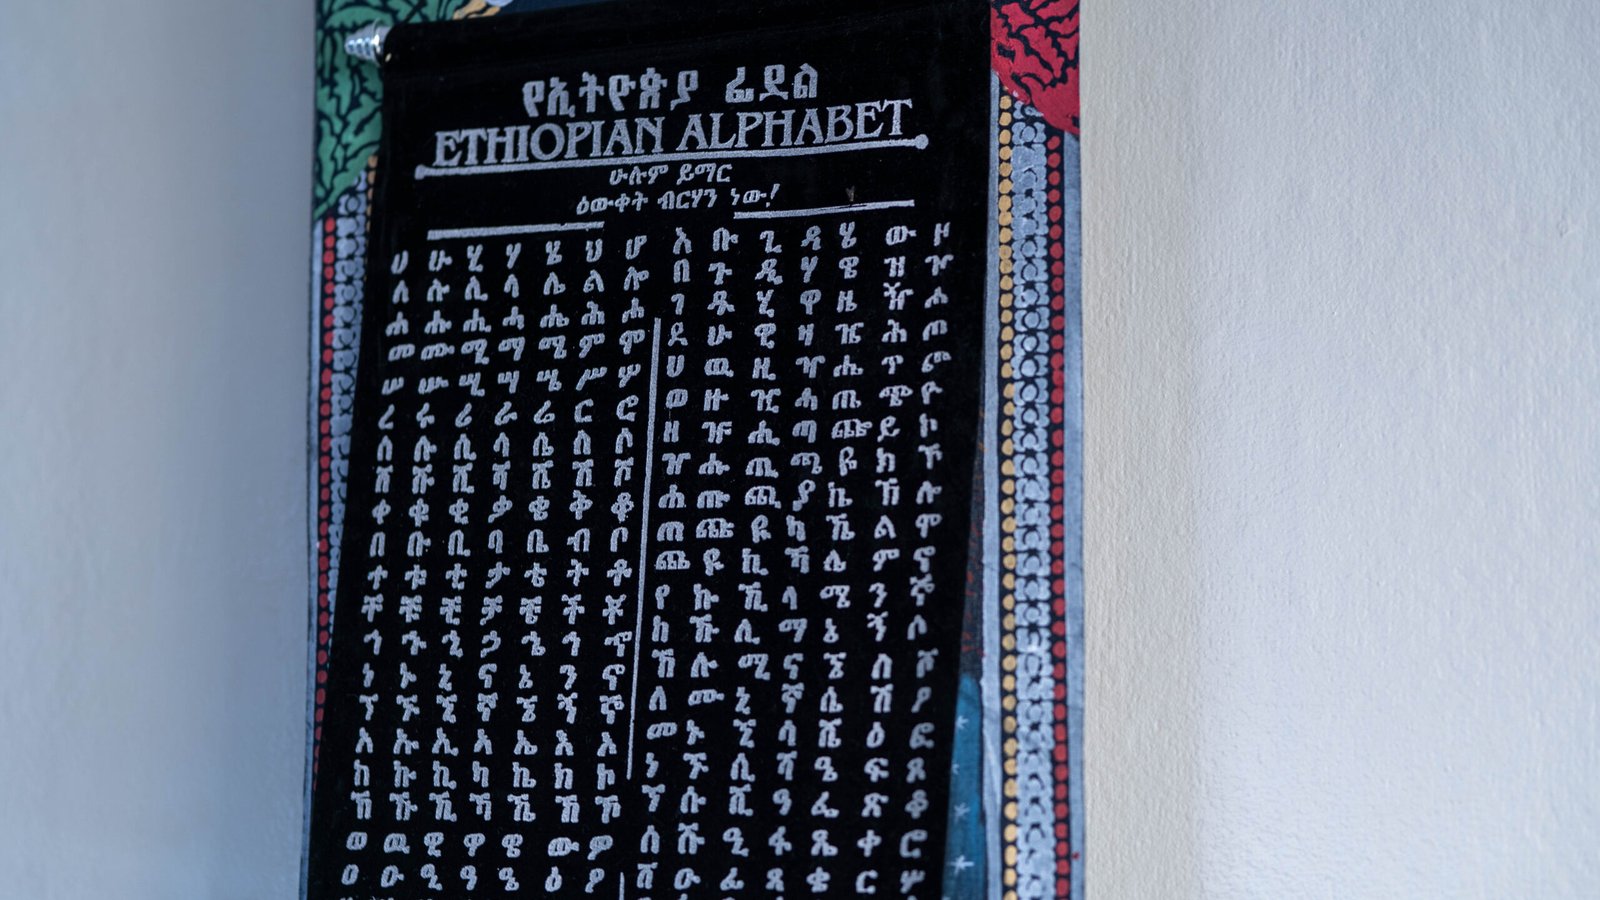 የኢትዮጵያ ፊደል
ETHIOPIAN ALPHABET
ሁሉም ይማር
ዕውቀት ብርሃን ነው!
ሀ ሁ ሂ ሃ ሄ ህ ሆ
ለ ሉ ሊ ላ ሌ ል ሎ
ሐ ሑ ሒ ሓ ሔ ሕ ሖ
መ ሙ ሚ ማ ሜ ም ሞ
ሠ ሡ ሢ ሣ ሤ ሥ ሦ
ረ ሩ ሪ ራ ሬ ር ሮ
ሰ ሱ ሲ ሳ ሴ ስ ሶ
ሸ ሹ ሺ ሻ ሼ ሽ ሾ
ቀ ቁ ቂ ቃ ቄ ቅ ቆ
በ ቡ ቢ ባ ቤ ብ ቦ
ተ ቱ ቲ ታ ቴ ት ቶ
ቸ ቹ ቺ ቻ ቼ ች ቾ
ኀ ኁ ኂ ኃ ኄ ኅ ኆ
ነ ኑ ኒ ና ኔ ን ኖ
ኘ ኙ ኚ ኛ ኜ ኝ ኞ
አ ኡ ኢ ኣ ኤ እ ኦ
ከ ኩ ኪ ካ ኬ ክ ኮ
ኸ ኹ ኺ ኻ ኼ ኽ ኾ
ወ ዉ ዊ ዋ ዌ ው ዎ
ዐ ዑ ዒ ዓ ዔ ዕ ዖ
አ ቡ ጊ ዳ ሄ ው ዞ
በ ጉ ዲ ሃ ዌ ዝ ዦ
ገ ዱ ሂ ዋ ዜ ዥ ሖ
ደ ሁ ዊ ዛ ዤ ሕ ጦ
ሀ ዉ ዚ ዣ ሔ ጥ ጮ
ወ ዙ ዢ ሓ ጤ ጭ ዮ
ዘ ዡ ሒ ጣ ጬ ይ ኮ
ዠ ሑ ጢ ጫ ዬ ክ ኾ
ሐ ጡ ጪ ያ ኬ ኽ ሎ
ጠ ጩ ዪ ካ ኼ ል ሞ
ጨ ዩ ኪ ኻ ሌ ም ኖ
የ ኩ ኺ ላ ሜ ን ኞ
ከ ኹ ሊ ማ ኔ ኝ ሶ
ኸ ሉ ሚ ና ኜ ስ ሾ
ለ ሙ ኒ ኛ ሴ ሽ ዖ
መ ኑ ኚ ሳ ሼ ዕ ፎ
ነ ኙ ሲ ሻ ዔ ፍ ጾ
ኘ ሱ ሺ ዓ ፌ ጽ ቆ
ሰ ሹ ዒ ፋ ጼ ቀ ሮ
ሸ ዑ ፊ ጻ ቄ ር ሦ